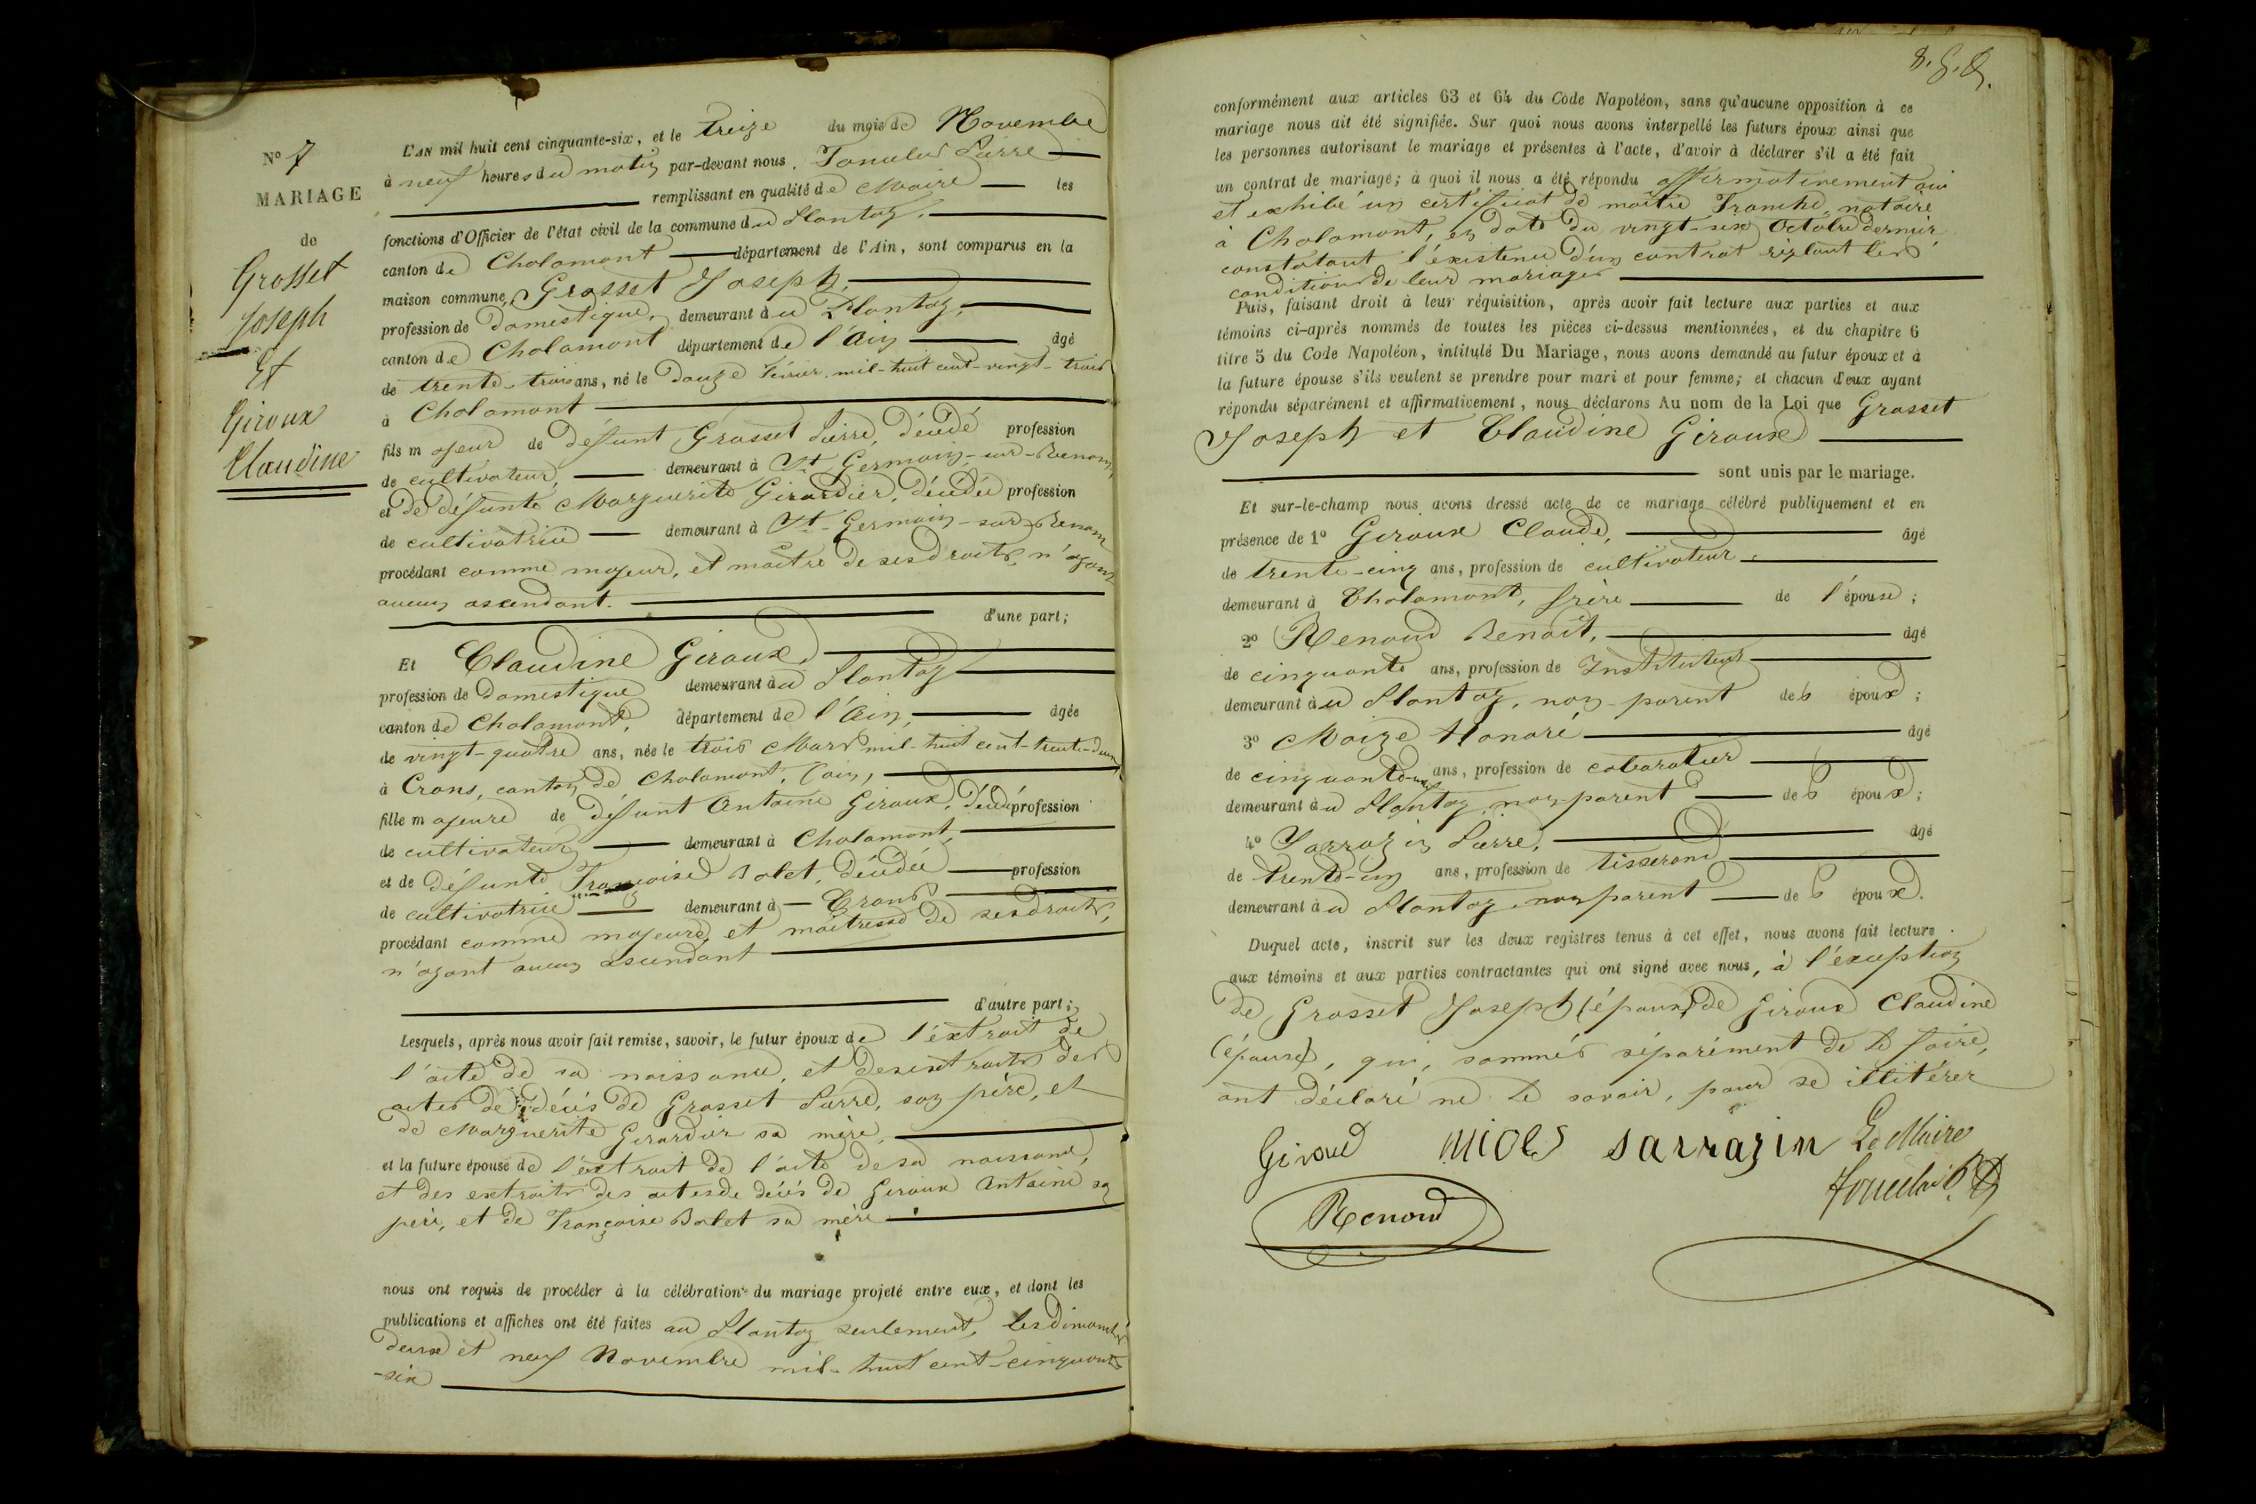 N° 7
MARIAGE
de
Grosset
Joseph
Et
Giroux
Claudine
L'AN mil huit cent cinquante-six, et le treize du mois de Novembre
à neuf heures du matin par-devant nous, Pierre
remplissant en qualité de Maire les
fonctions d'Officier de l'état civil de la commune du Plantay,
canton de Chalamont département de l'Ain, sont comparus en la
maison commune, Grosset Joseph,
profession de domestique, demeurant au Plantay,
canton de Chalamont département de l'Ain âgé
de trente-trois ans, né le douze février mil-huit cent-vingt-trois
à Chalamont
fils majeur de défunt Grosset Pierre, décédé profession
de cultivateur, demeurant à St Germain-sur-Renom,
et de défunte Marguerite Girardier, décédée profession
de cultivatrice demeurant à St-Germain-sur-Renom
procédant comme majeur, et maître de ses droits, n'ayant
aucun ascendant.
d'une part;
Et Claudine Giroux,
profession de domestique demeurant au Plantay
canton de Chalamont, département de l'Ain, âgée
de vingt-quatre ans, née le trois Mars mil-huit cent-trente-deux
à Crans, canton de Chalamont, (ain,
fille majeure de défunt Antoine Giroux, décédé profession
de cultivateur demeurant à Chalamont,
et de défunte Françoise Bolet, décédée profession
de cultivatrice demeurant à Crans
procédant comme majeure, et maîtresse de ses droits,
n'ayant aucun ascendant
d'autre part;
Lesquels, après nous avoir fait remise, savoir, le futur époux de l'extrait de
l'acte de sa naissance, et des extraits des
actes de décès de Grosset Pierre, son père, et
de Marguerite Girardier sa mère,
et la future épouse de l'extrait de l'acte de sa naissance,
et des extraits des actes de décès de Giroux Antoine son
père, et de Françoise Bolet sa mère
nous ont requis de procéder à la célébration du mariage projeté entre eux, et dont les
publications et affiches ont été faites au Plantay seulement, les dimanches
deux et neuf Novembre mil-huit cent-cinquante
-six
conformément aux articles 63 et 64 du Code Napoléon, sans qu'aucune opposition à ce
mariage nous ait été signifiée. Sur quoi nous avons interpellé les futurs époux ainsi que
les personnes autorisant le mariage et présentes à l'acte, d'avoir à déclarer s'il a été fait
un contrat de mariage; à quoi il nous a été répondu affirmativement oui
et exhibé un certificat de maître Franche, notaire
à Chalamont, en date du vingt-six Octobre dernier,
constatant l'existence d'un contrat réglant les
conditions de leur mariage
Puis, faisant droit à leur réquisition, après avoir fait lecture aux parties et aux
témoins ci-après nommés de toutes les pièces ci-dessus mentionnées, et du chapitre 6
titre 5 du Code Napoléon, intitulé Du Mariage, nous avons demandé au futur époux et à
la future épouse s'ils veulent se prendre pour mari et pour femme; et chacun d'eux ayant
répondu séparément et affirmativement, nous déclarons Au nom de la Loi que Grosset
Joseph et Claudine Giroux
sont unis par le mariage.
Et sur-le-champ nous avons dressé acte de ce mariage célébré publiquement et en
présence de 1° Giroux Claude, âgé
de trente-cinq ans, profession de cultivateur,
demeurant à Chalamont, frère de l'épouse;
2° Renoud Benoit, âgé
de cinquante ans, profession de Instituteur
demeurant au Plantay, non-parent des époux;
3° Moize Honoré âgé
de cinquante-neuf ans, profession de cabaratier
demeurant au Plantay, non-parent des époux;
4° Sarrazin Pierre, âgé
de trente-cinq ans, profession de tisserand
demeurant au Plantay, non parent des époux.
Duquel acte, inscrit sur les deux registres tenus à cet effet, nous avons fait lecture
aux témoins et aux parties contractantes qui ont signé avec nous, à l'exception
de Grosset Joseph (époux) de Giroux Claudine
(épouse), qui, sommés séparément de le faire,
ont déclaré ne le savoir, pour se illitérer
Giroud
sarrazin
Le Maire
Renoud